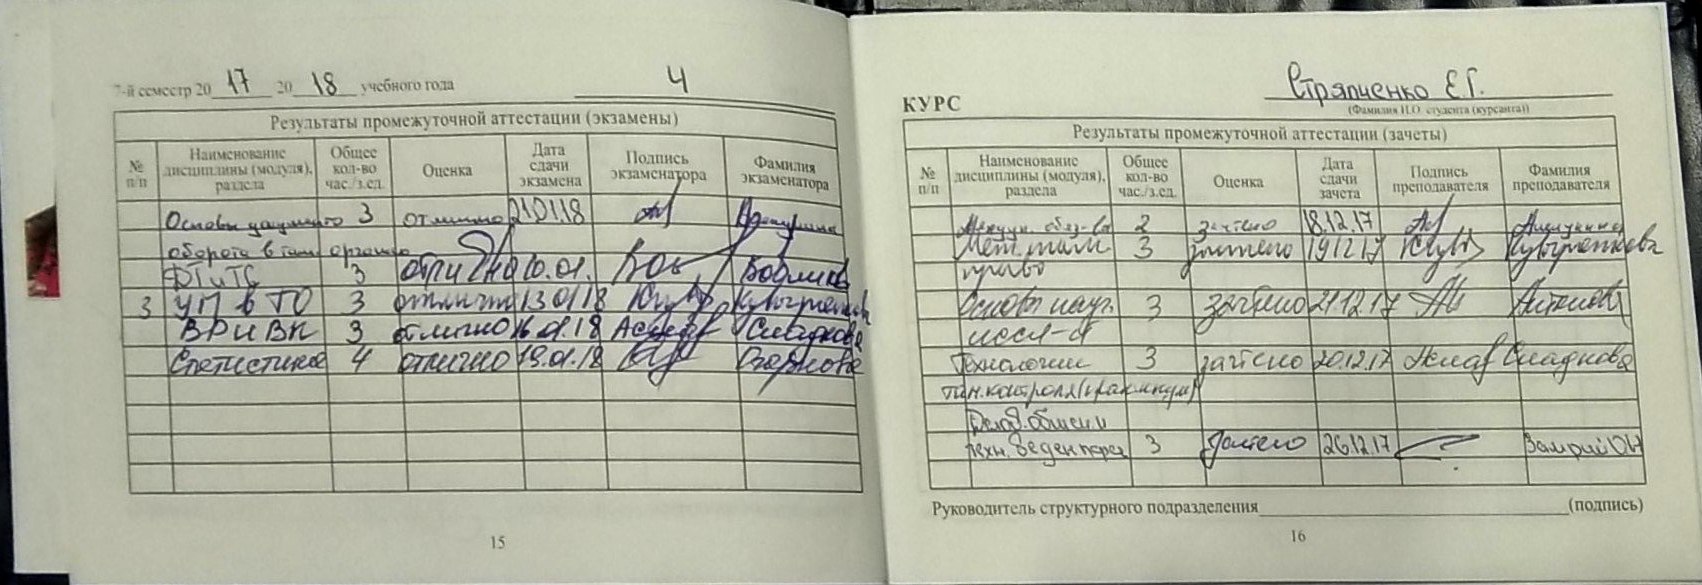 7-й семестр 2017 2018 учебного года 4
Результаты промежуточной аттестации (экзамены)
№ п/п Наименование дисциплины (модуля), раздела Общее кол-во час./з.ед. Оценка Дата сдачи экзамена Подпись экзаменатора Фамилия экзаменатора
Основы документо 3 отлично 21.01.18
оборота в там. органах
ФТиТС 3 отлично 10.01.
3 УП в ТО 3 отлично 13.01.18
ВРиВК 3 отлично 16.01.18 Сладкова
Статистика 4 отлично 19.01.18
15
КУРС Стряпченко Е.Г.
(Фамилия И.О. студента (курсанта))
Результаты промежуточной аттестации (зачеты)
№ п/п Наименование дисциплины (модуля), раздела Общее кол-во час./з.ед. Оценка Дата сдачи зачета Подпись преподавателя Фамилия преподавателя
Междун. обяз-ва 2 зачтено 18.12.17
там. 3 зачтено 19.12.17
право
Основы науч. 3 зачтено 21.12.17
иссл-я
Технологии 3 зачтено 20.12.17 Сладкова
там. контроля (практикум)
Делов. общен. и
техн. веден. перег. 3 зачтено 26.12.17
Руководитель структурного подразделения (подпись)
16